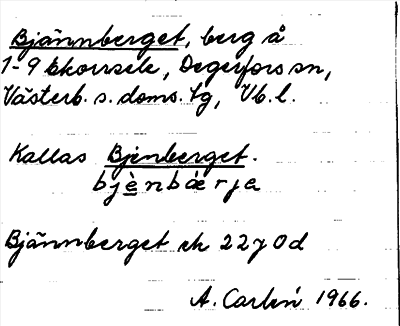 Bjännberget, berg å
1-9 Ekorrsele, Degerfors sn,
Västerb. s. doms. tg, Vb. l.
Kallas Bjenberget.
bjènbárja
Bjännberget ek 22J0d
A. Carlén 1966.